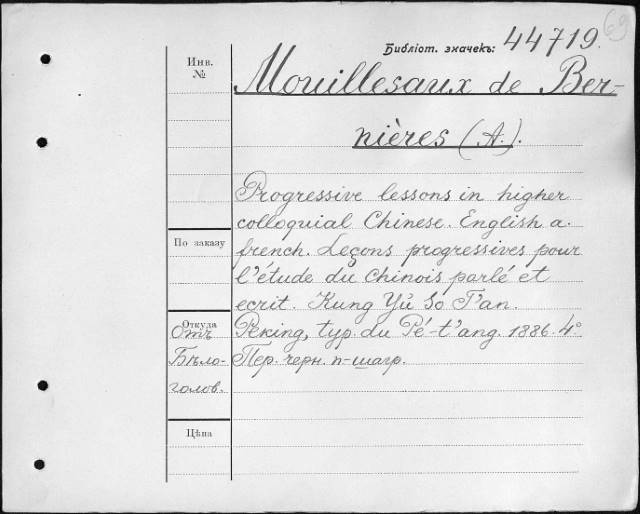 69
Библіот. значекъ: 44719.
Инв.
№
Mouillesaux de Ber-
nières (A.).
Progressive lessons in higher
colloquial Chinese. English a.
french. Leçons progressives pour
По заказу
l'étude du Chinois parlé et
ecrit. Kung Yü So T'an.
Откуда
Peking, typ. du Pé-t'ang. 1886. 4°
Отъ
Бѣло-
голов.
Пер. черн. п-шагр.
Цѣна